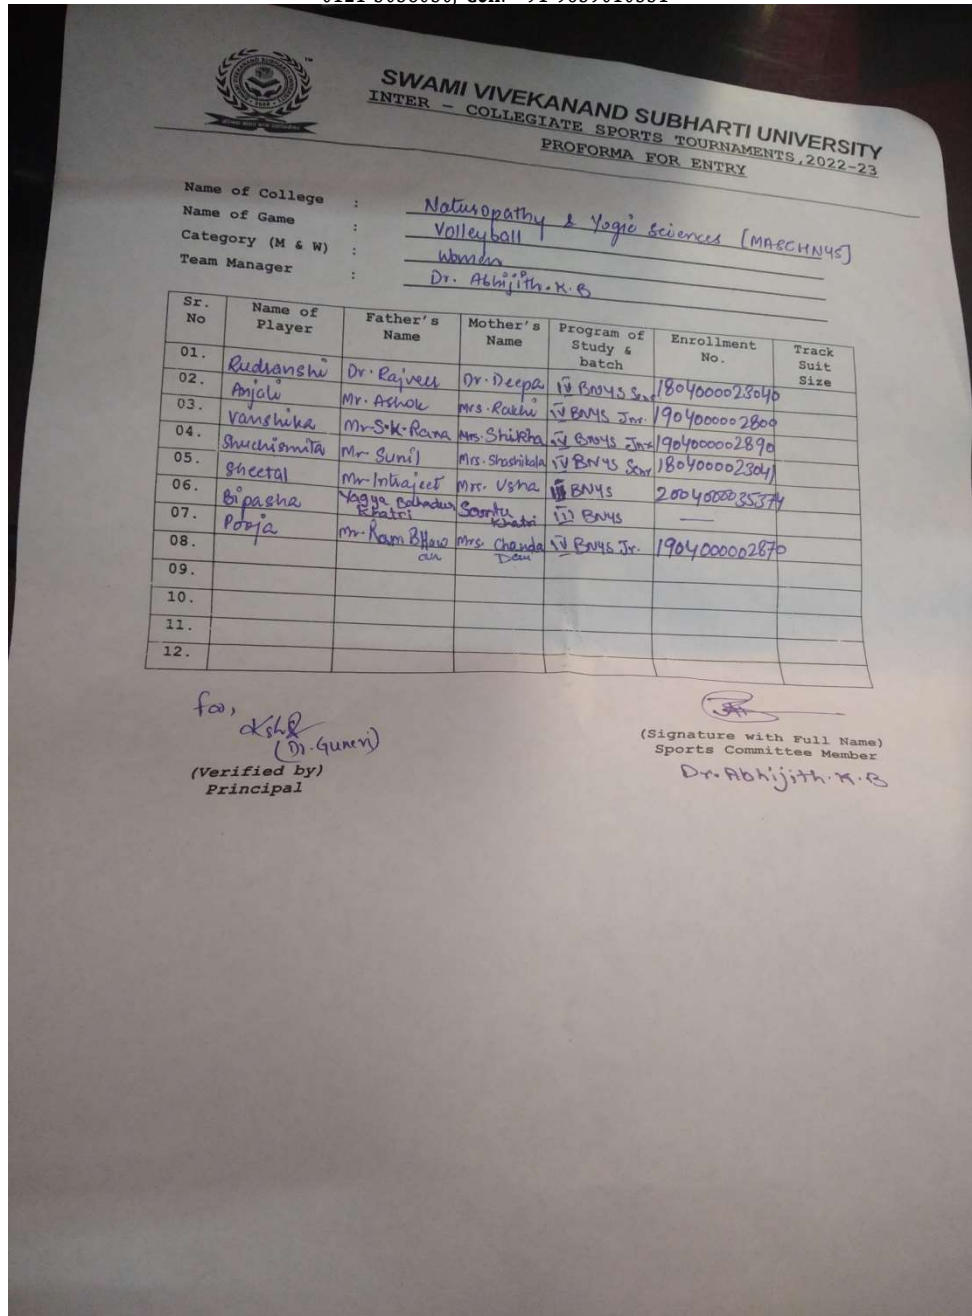 SWAMI VIVEKANAND SUBHARTI UNIVERSITY
INTER - COLLEGIATE SPORTS TOURNAMENTS, 2022-23
PROFORMA FOR ENTRY
Name of College : Naturopathy & Yogic Sciences [MASCHNYS]
Name of Game : Volleyball
Category (M & W) : Women
Team Manager : Dr. Abhijith.K.B
Sr. No Name of Player Father's Name Mother's Name Program of Study & batch Enrollment No. Track Suit Size
01. Rudranshi Dr. Rajveer Dr. Deepa IV BNYS Snr
02. Anjali Mr. Ashok Mrs. Rakhi IV BNYS Jnr.
03. Vanshika Mr S.K. Rana Mrs. Shikha IV BNYS Jnr 1904000002890
04. Shuchismita Mr Sunil Mrs. Shashikala IV BNYS Senr
05. Sheetal Mr Intrajeet Mrs. Usha III BNYS
06. Bipasha Yagya Bahadur Khatri Khatri III BNYS —
07. Pooja Mr. Ram Mrs. Chanda IV BNYS Jr. 1904000002870
08.
09.
10.
11.
12.
for,
(Dr. Guneri)
(Verified by)
Principal
(Signature with Full Name)
Sports Committee Member
Dr. Abhijith.K.B